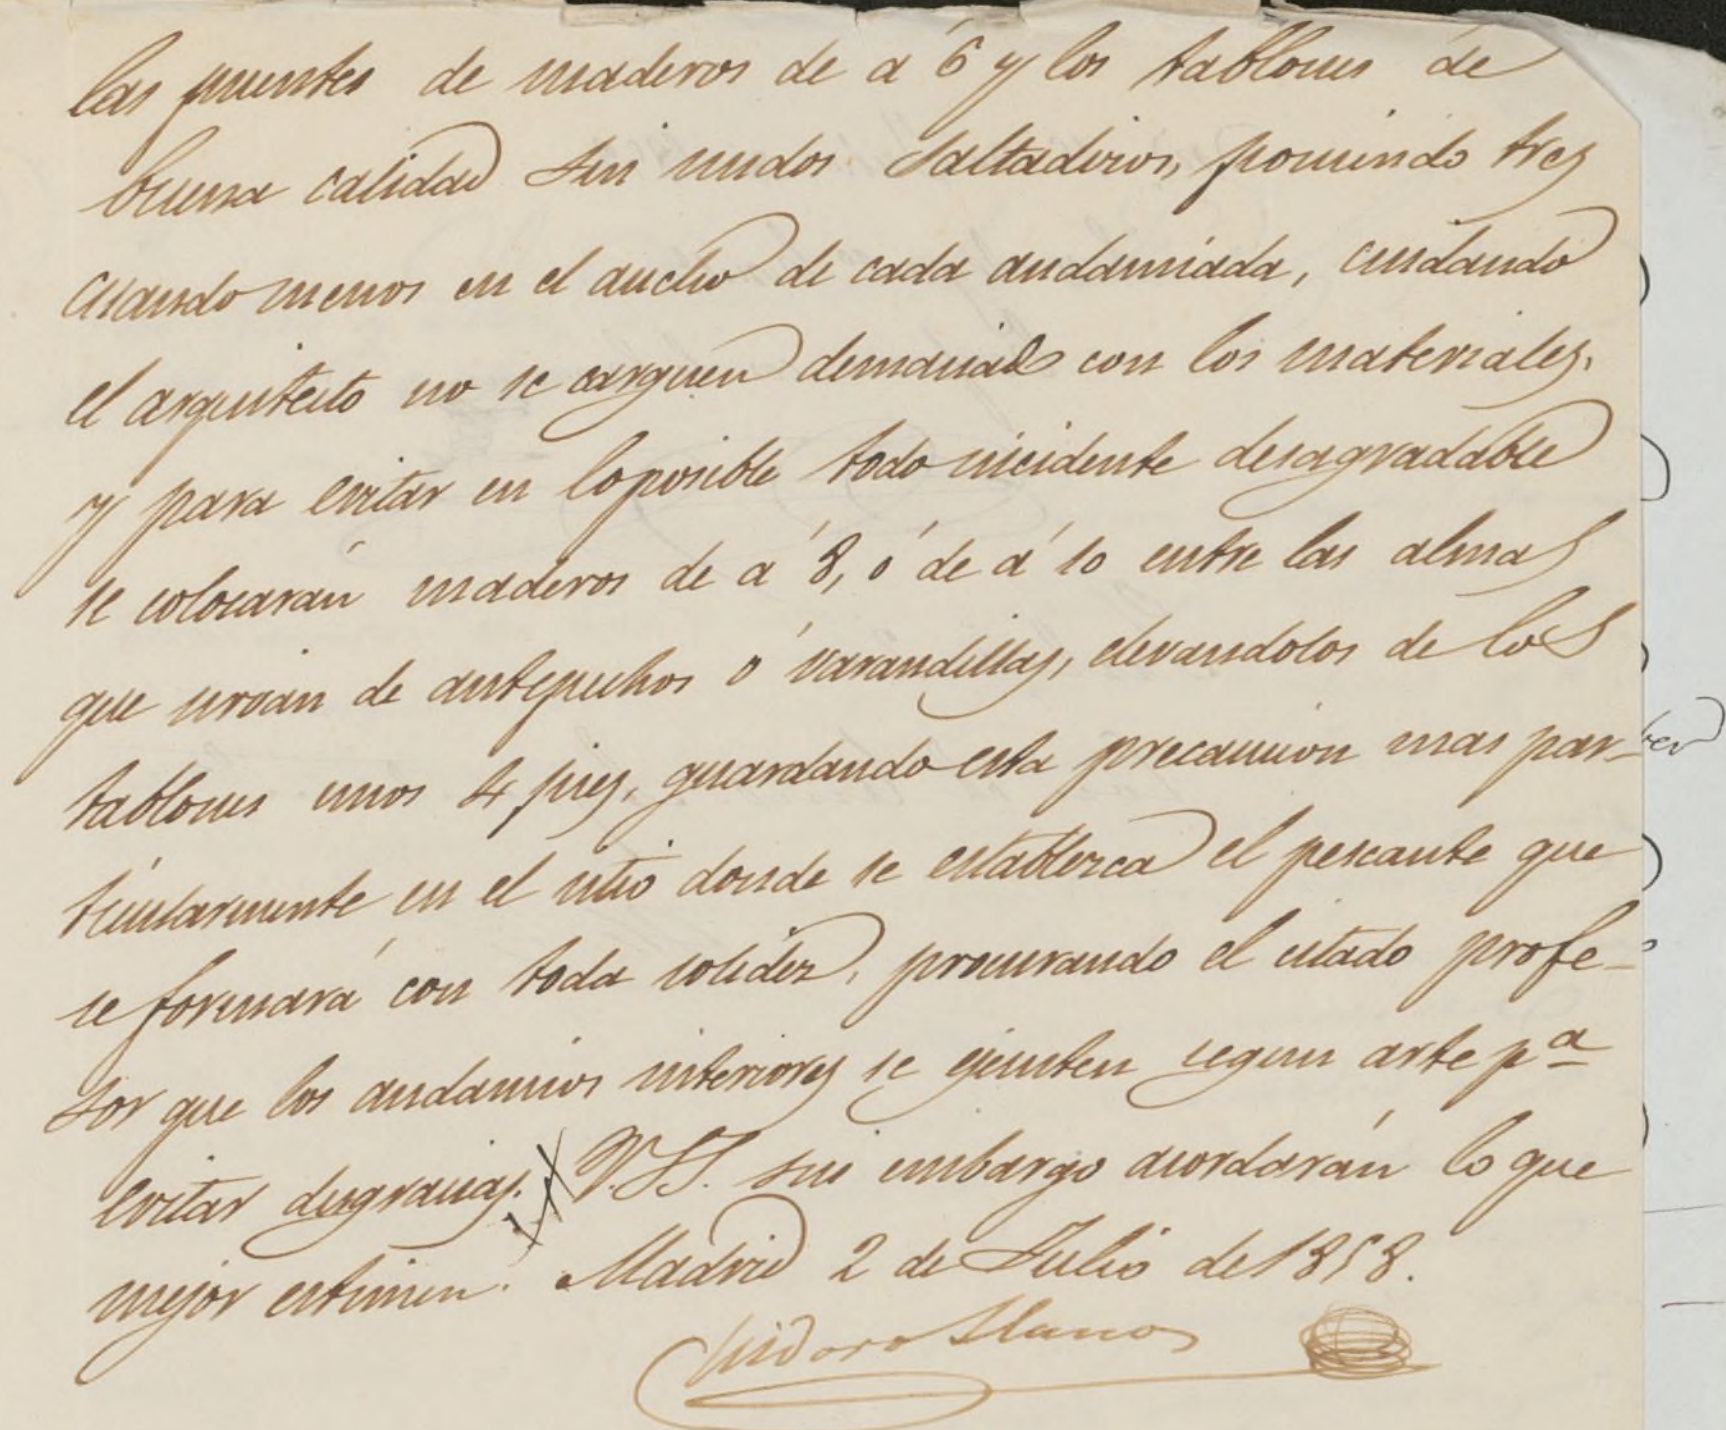 las puentes de maderos de á 6 y los tablones de
buena calidad sin nudos saltadizos, poniendo tres
cuando menos en el ancho de cada andamiada, cuidando
el arquitecto no se carguen demasiado con los materiales,
y para evitar en lo posible todo incidente desagradable
se colocarán maderos de á 8, ó de á 10 entre las almas
que sirvan de antepechos ó varandillas, elevandolos de los
tablones unos 4 pies, guardando esta precaucion mas par-
ticularmente en el sitio donde se establezca el pescante que
se formará con toda solidez, procurando el citado profe-
sor que los andamios interiores se ejecuten segun arte pª
evitar desgracias. V.SS. sin embargo acordarán lo que
mejor estimen. Madrid 2 de Julio de 1858.
Isidoro Llanos